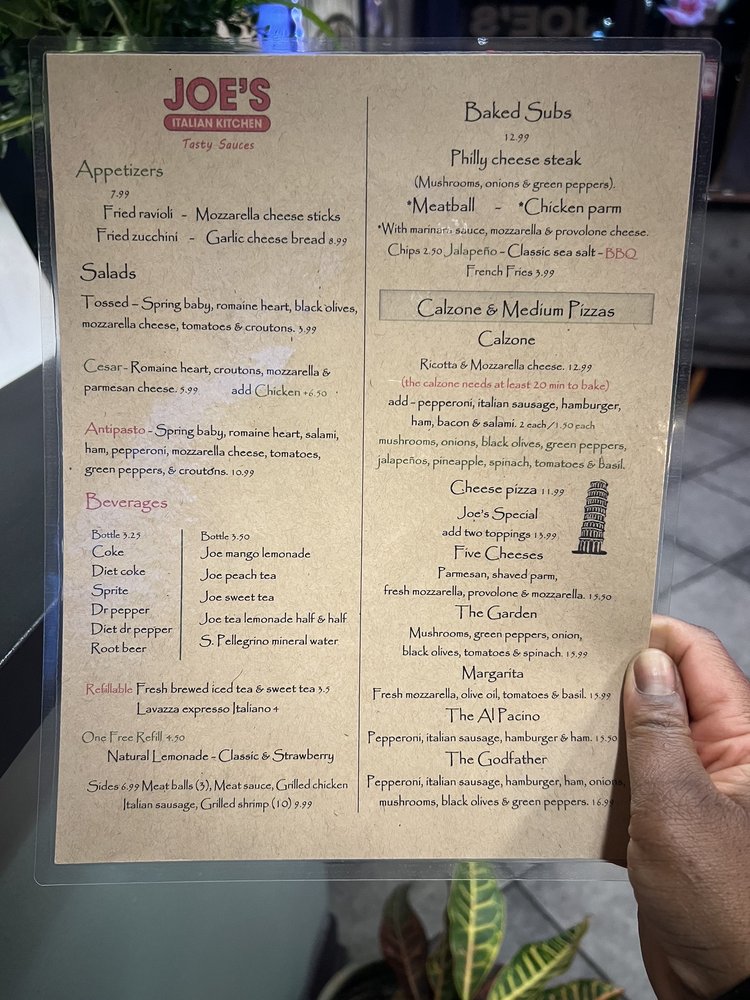 JOE'S
ITALIAN KITCHEN
Tasty Sauces
Appetizers
7.99
Fried ravioli - Mozzarella cheese sticks
Fried zucchini - Garlic cheese bread 8.99
Salads
Tossed – Spring baby, romaine heart, black olives,
mozzarella cheese, tomatoes & croutons. 3.99
Cesar - Romaine heart, croutons, mozzarella &
parmesan cheese. 5.99 add Chicken +6.50
Antipasto - Spring baby, romaine heart, salami,
ham, pepperoni, mozzarella cheese, tomatoes,
green peppers, & croutons. 10.99
Beverages
Bottle 3.25
Coke
Diet coke
Sprite
Dr pepper
Diet dr pepper
Root beer
Bottle 3.50
Joe mango lemonade
Joe peach tea
Joe sweet tea
Joe tea lemonade half & half
S. Pellegrino mineral water
Refillable Fresh brewed iced tea & sweet tea 3.5
Lavazza expresso Italiano 4
One Free Refill 4.50
Natural Lemonade - Classic & Strawberry
Sides 6.99 Meat balls (3), Meat sauce, Grilled chicken
Italian sausage, Grilled shrimp (10) 9.99
Baked Subs
12.99
Philly cheese steak
(Mushrooms, onions & green peppers).
*Meatball - *Chicken parm
*With marinara sauce, mozzarella & provolone cheese.
Chips 2.50 Jalapeño - Classic sea salt - BBQ
French Fries 3.99
Calzone & Medium Pizzas
Calzone
Ricotta & Mozzarella cheese. 12.99
(the calzone needs at least 20 min to bake)
add - pepperoni, italian sausage, hamburger,
ham, bacon & salami. 2 each / 1.50 each
mushrooms, onions, black olives, green peppers,
jalapeños, pineapple, spinach, tomatoes & basil.
Cheese pizza 11.99
Joe's Special
add two toppings 13.99
Five Cheeses
Parmesan, shaved parm,
fresh mozzarella, provolone & mozzarella. 15.50
The Garden
Mushrooms, green peppers, onion,
black olives, tomatoes & spinach. 15.99
Margarita
Fresh mozzarella, olive oil, tomatoes & basil. 15.99
The Al Pacino
Pepperoni, italian sausage, hamburger & ham. 15.50
The Godfather
Pepperoni, italian sausage, hamburger, ham, onions,
mushrooms, black olives & green peppers. 16.99
JOE'S